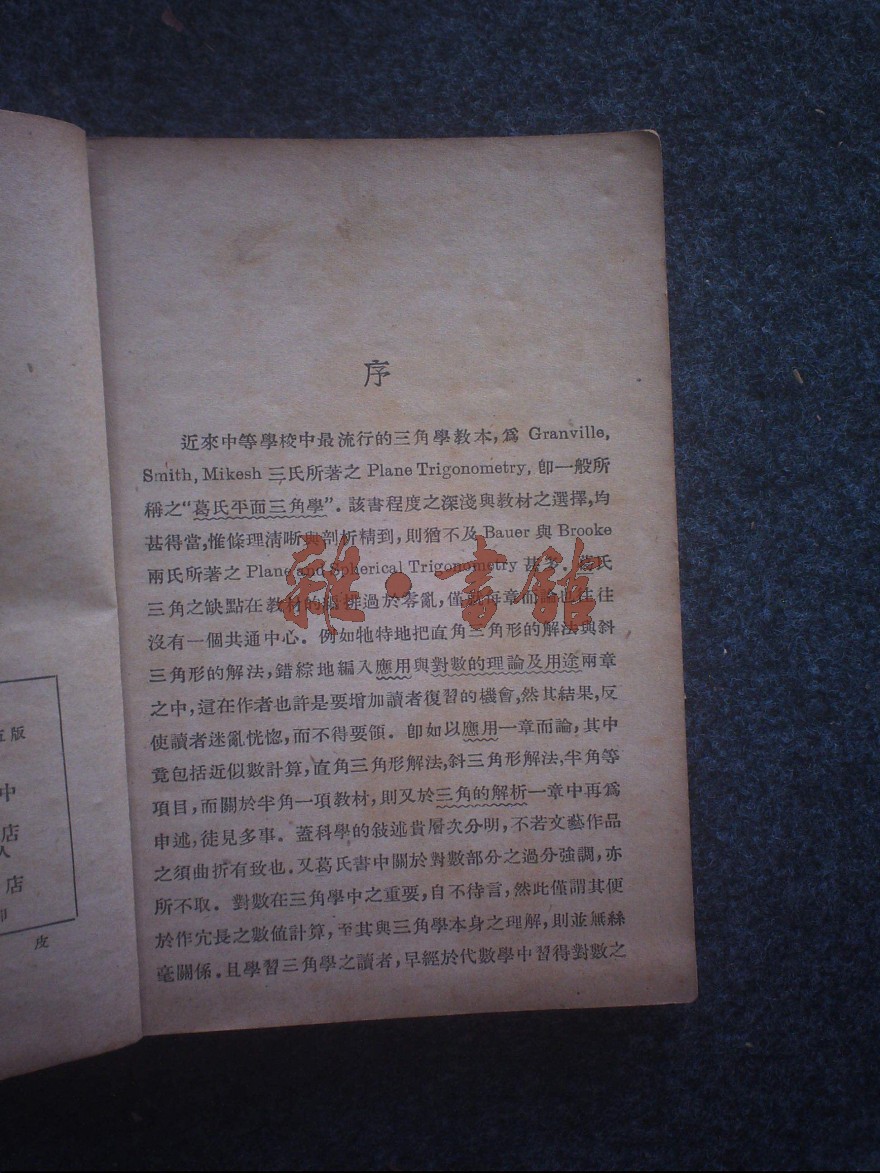 序
近來中等學校中最流行的三角學教本,爲 Granville,
Smith, Mikesh 三氏所著之 Plane Trigonometry, 卽一般所
稱之“葛氏平面三角學”. 該書程度之深淺與教材之選擇,均
甚得當,惟條理清晰與剖析精到,則猶不及 Bauer 與 Brooke
兩氏所著之 Plane and Spherical Trigonometry 甚多. 葛氏
三角之缺點在教材的編排過於零亂,僅就每章而論也往往
沒有一個共通中心. 例如牠特地把直角三角形的解法與斜
三角形的解法,錯綜地編入應用與對數的理論及用途兩章
之中,這在作者也許是要增加讀者復習的機會,然其結果,反
使讀者迷亂恍惚,而不得要領. 卽如以應用一章而論,其中
竟包括近似數計算,直角三角形解法,斜三角形解法,半角等
項目,而關於半角一項教材,則又於三角的解析一章中再爲
申述,徒見多事. 蓋科學的敍述貴層次分明,不若文藝作品
之須曲折有致也. 又葛氏書中關於對數部分之過分強調,亦
所不取. 對數在三角學中之重要,自不待言,然此僅謂其便
於作冗長之數値計算,至其與三角學本身之理解,則並無絲
毫關係. 且學習三角學之讀者,早經於代數學中習得對數之
版
中
店
人
店
印
皮
雜·書館